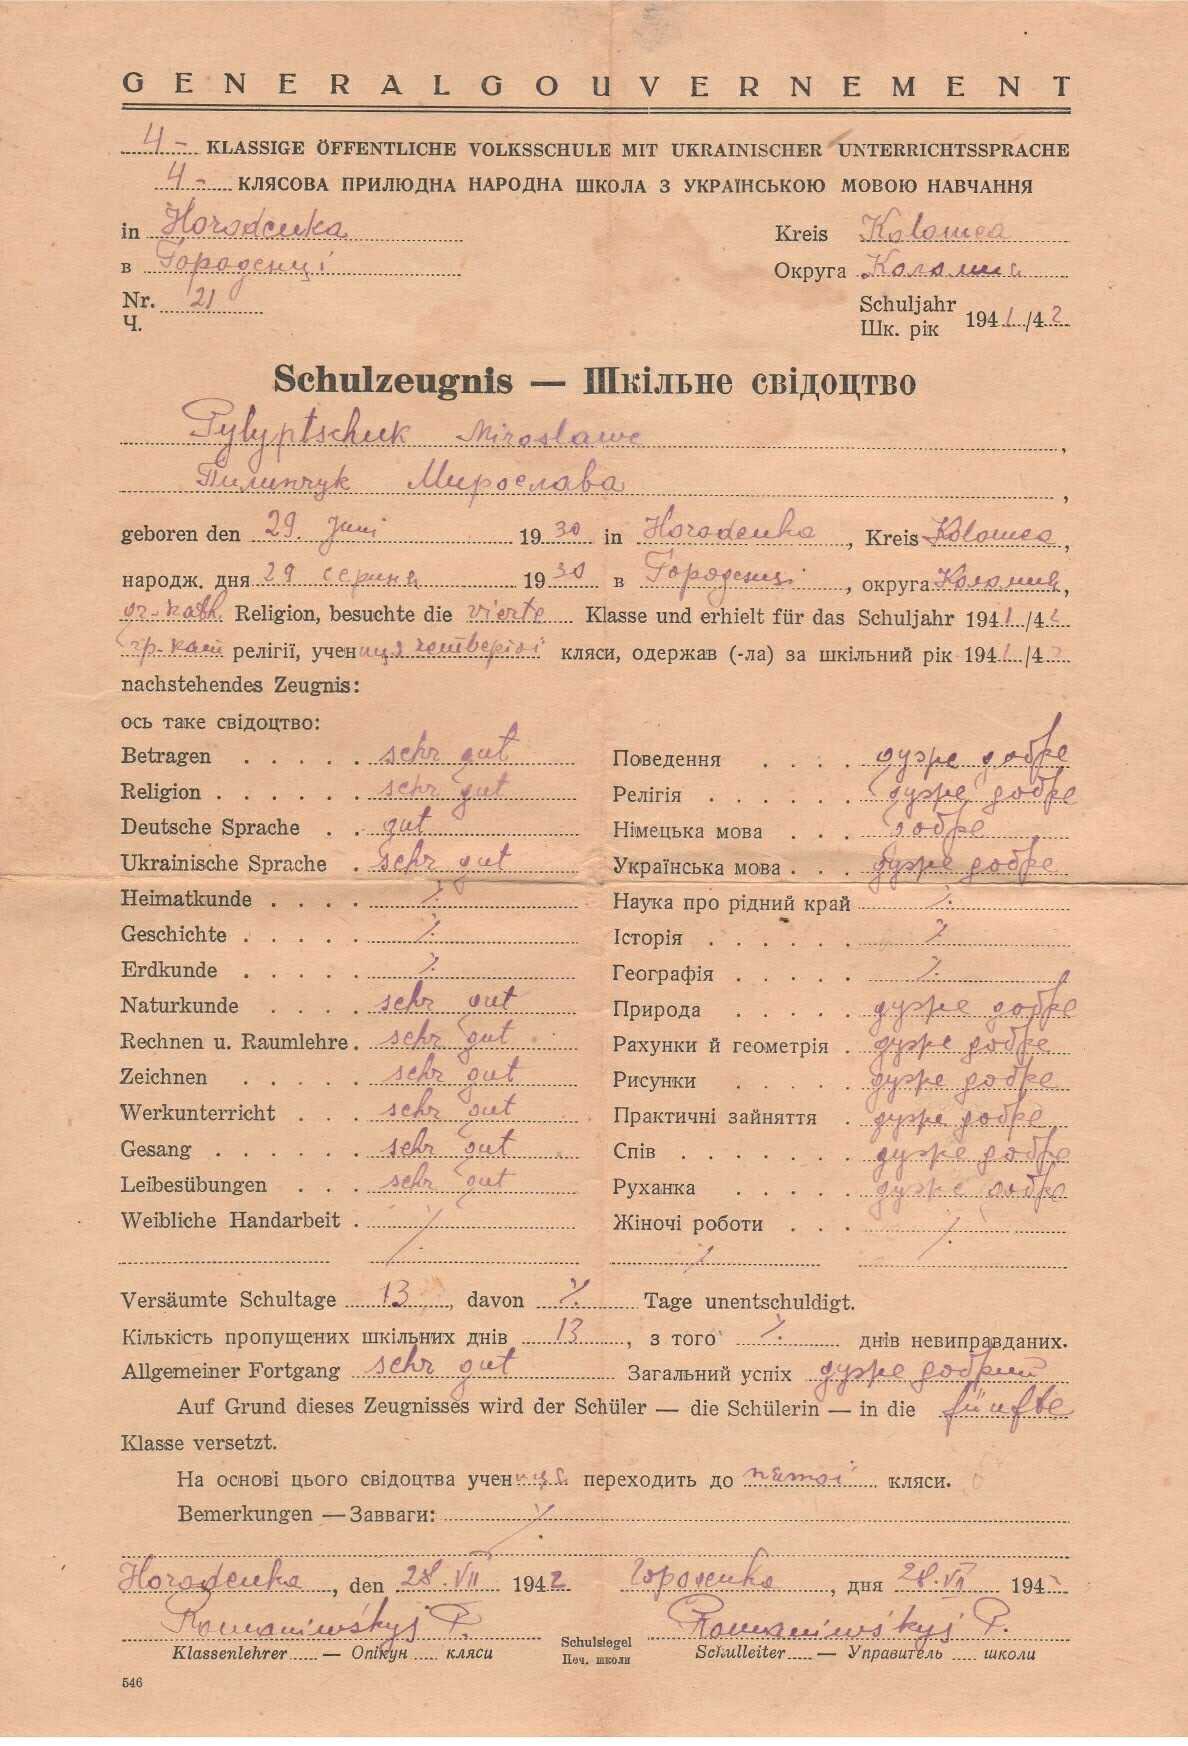 GENERALGOUVERNEMENT
4- KLASSIGE ÖFFENTLICHE VOLKSSCHULE MIT UKRAINISCHER UNTERRICHTSSPRACHE
4- КЛЯСОВА ПРИЛЮДНА НАРОДНА ШКОЛА З УКРАЇНСЬКОЮ МОВОЮ НАВЧАННЯ
in Horodenka Kreis Kolomea
в Городенці Округа Коломия
Nr. 21 Schuljahr
Ч. Шк. рік 1941/42
Schulzeugnis — Шкільне свідоцтво
Pylyptschuk Miroslawa,
Пилипчук Мирослава,
geboren den 29. Juni 1930 in Horodenka, Kreis Kolomea,
народж. дня 29 серпня 1930 в Городенці, округа Коломия,
gr.-kath. Religion, besuchte die vierte Klasse und erhielt für das Schuljahr 1941/42
гр.-кат релігії, учениця четвертої кляси, одержав (-ла) за шкільний рік 1941/42
nachstehendes Zeugnis:
ось таке свідоцтво:
Betragen . . . . . sehr gut Поведення . . . . дуже добре
Religion . . . . . . sehr gut Релігія . . . . . . дуже добре
Deutsche Sprache . . gut Німецька мова . . . добре
Ukrainische Sprache . sehr gut Українська мова . . . дуже добре
Heimatkunde . . . . ٪ Наука про рідний край ٪
Geschichte . . . . . ٪ Історія . . . . . . ٪
Erdkunde . . . . . ٪ Географія . . . . . ٪
Naturkunde . . . . sehr gut Природа . . . . . дуже добре
Rechnen u. Raumlehre . sehr gut Рахунки й геометрія . дуже добре
Zeichnen . . . . . sehr gut Рисунки . . . . . дуже добре
Werkunterricht . . . sehr gut Практичні зайняття . дуже добре
Gesang . . . . . . sehr gut Спів . . . . . . . дуже добре
Leibesübungen . . . sehr gut Руханка . . . . . дуже добре
Weibliche Handarbeit . ٪ Жіночі роботи . . . ٪
٪
Versäumte Schultage 13, davon ٪ Tage unentschuldigt.
Кількість пропущених шкільних днів 13, з того ٪ днів невиправданих.
Allgemeiner Fortgang sehr gut Загальний успіх дуже добрий
Auf Grund dieses Zeugnisses wird der Schüler — die Schülerin — in die fünfte
Klasse versetzt.
На основі цього свідоцтва учениця переходить до пятої кляси.
Bemerkungen — Завваги: ٪
Horodenka, den 28.VII 1942 Городенка, дня 28.VII 1942
Romaniwśkyj P. Romaniwśkyj P.
Klassenlehrer — Опікун кляси Schulsiegel Schulleiter — Управитель школи
Печ. школи
546